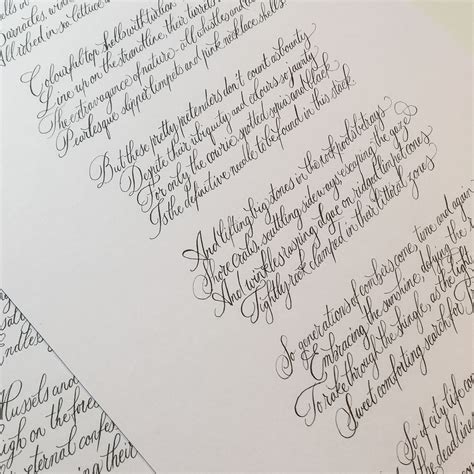 Barnacles, wink
All robed in sea lettuce
Colourful top-shells with italian
Line up on the strandline, their turrets
The extravagance of nature - all whistles and
Pearlesque slipper limpets and pink necklace shells.
But these pretty pretenders don't count as bounty
Despite their ubiquity and colours so jaunty
For only the cowrie spotted sepia and black
Is the definitive needle to be found in this stack.
And lifting big stones in the rockpool betrays
Shore Crabs, scuttling sideways, escaping the gaze
And winkles rasping algae on ridged limpet cones
Tightly rock clamped in their littoral zones
So generations of combers come, time and again
Embracing the sunshine, defying the
To rake through the shingle, as the tight
Sweet comforting search for
So if city life con
his deadline
endless
Mussels and
high on the fores
eternal confes
ing their